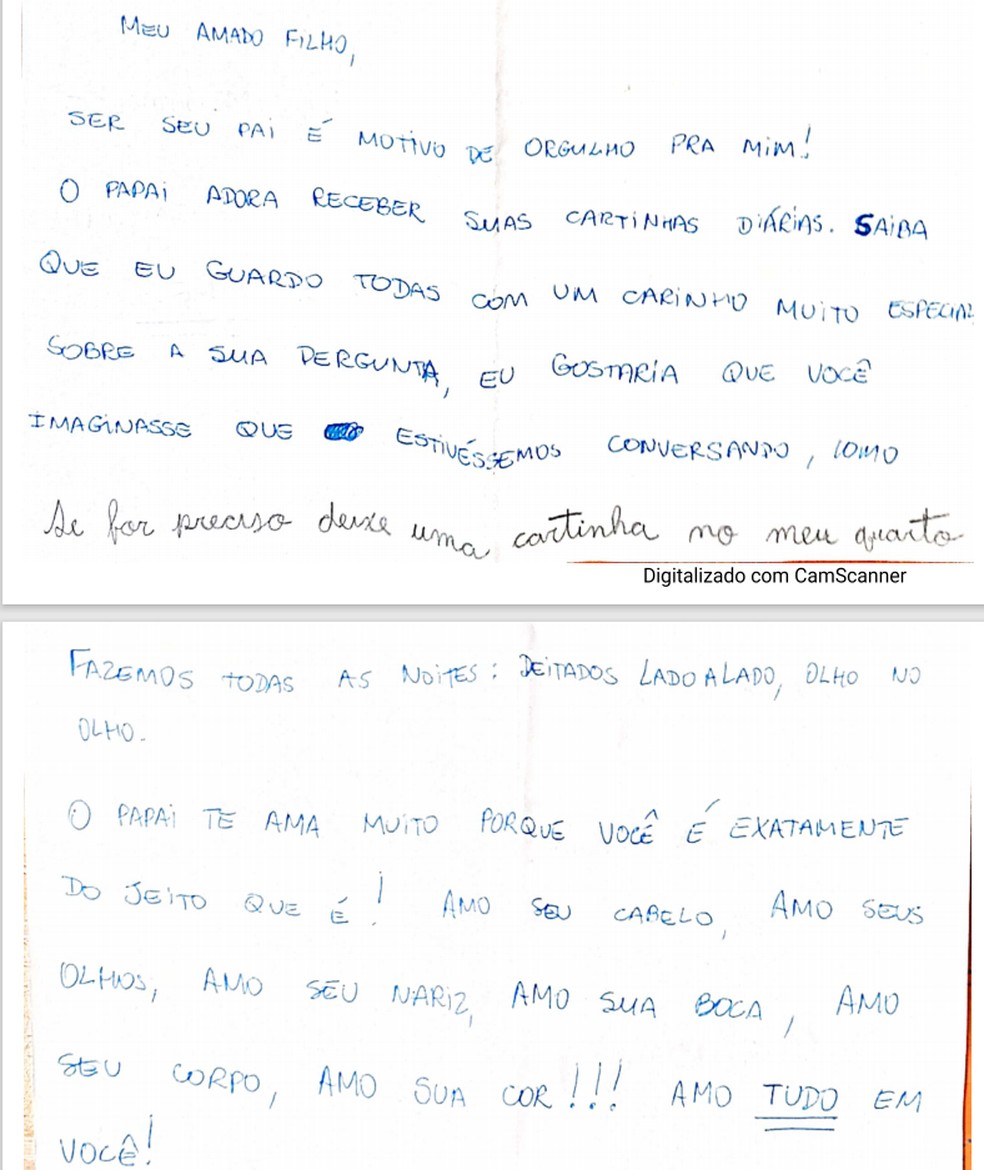 MEU AMADO FILHO,
SER SEU PAI É MOTIVO DE ORGULHO PRA MIM!
O PAPAI ADORA RECEBER SUAS CARTINHAS DIÁRIAS. SAIBA
QUE EU GUARDO TODAS COM UM CARINHO MUITO ESPECIAL
SOBRE A SUA PERGUNTA, EU GOSTARIA QUE VOCÊ
IMAGINASSE QUE ESTIVÉSSEMOS CONVERSANDO, COMO
Se for preciso deixe uma cartinha no meu quarto
Digitalizado com CamScanner
FAZEMOS TODAS AS NOITES: DEITADOS LADO A LADO, OLHO NO
OLHO.
O PAPAI TE AMA MUITO PORQUE VOCÊ É EXATAMENTE
DO JEITO QUE É! AMO SEU CABELO, AMO SEUS
OLHOS, AMO SEU NARIZ, AMO SUA BOCA, AMO
SEU CORPO, AMO SUA COR!!! AMO TUDO EM
VOCÊ!